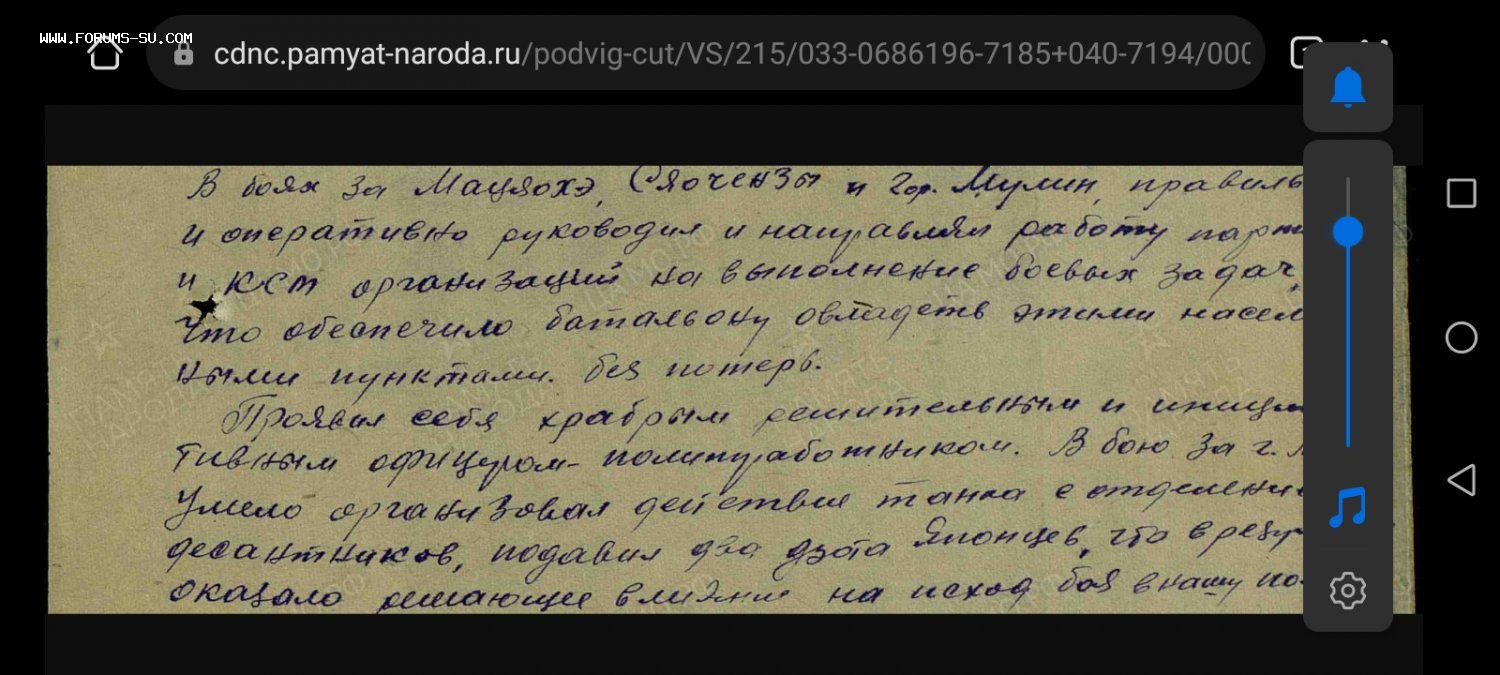 www.forums-su.com
cdnc.pamyat-naroda.ru/podvig-cut/VS/215/033-0686196-7185+040-7194/000
В боях за Мацяохэ, Сяочензы и гор. Мулин, правиль
и оперативно руководил и направлял работу парт
и КСМ организаций на выполнение боевых задач,
что обеспечило батальону овладеть этими насел
ными пунктами. без потерь.
Проявил себя храбрым решительным и иници
тивным офицером-политработником. В бою за г.
Умело организовал действие танка с отделени
десантников, подавил два дзота Японцев, что в резу
оказало решающее влияние на исход боя в нашу по